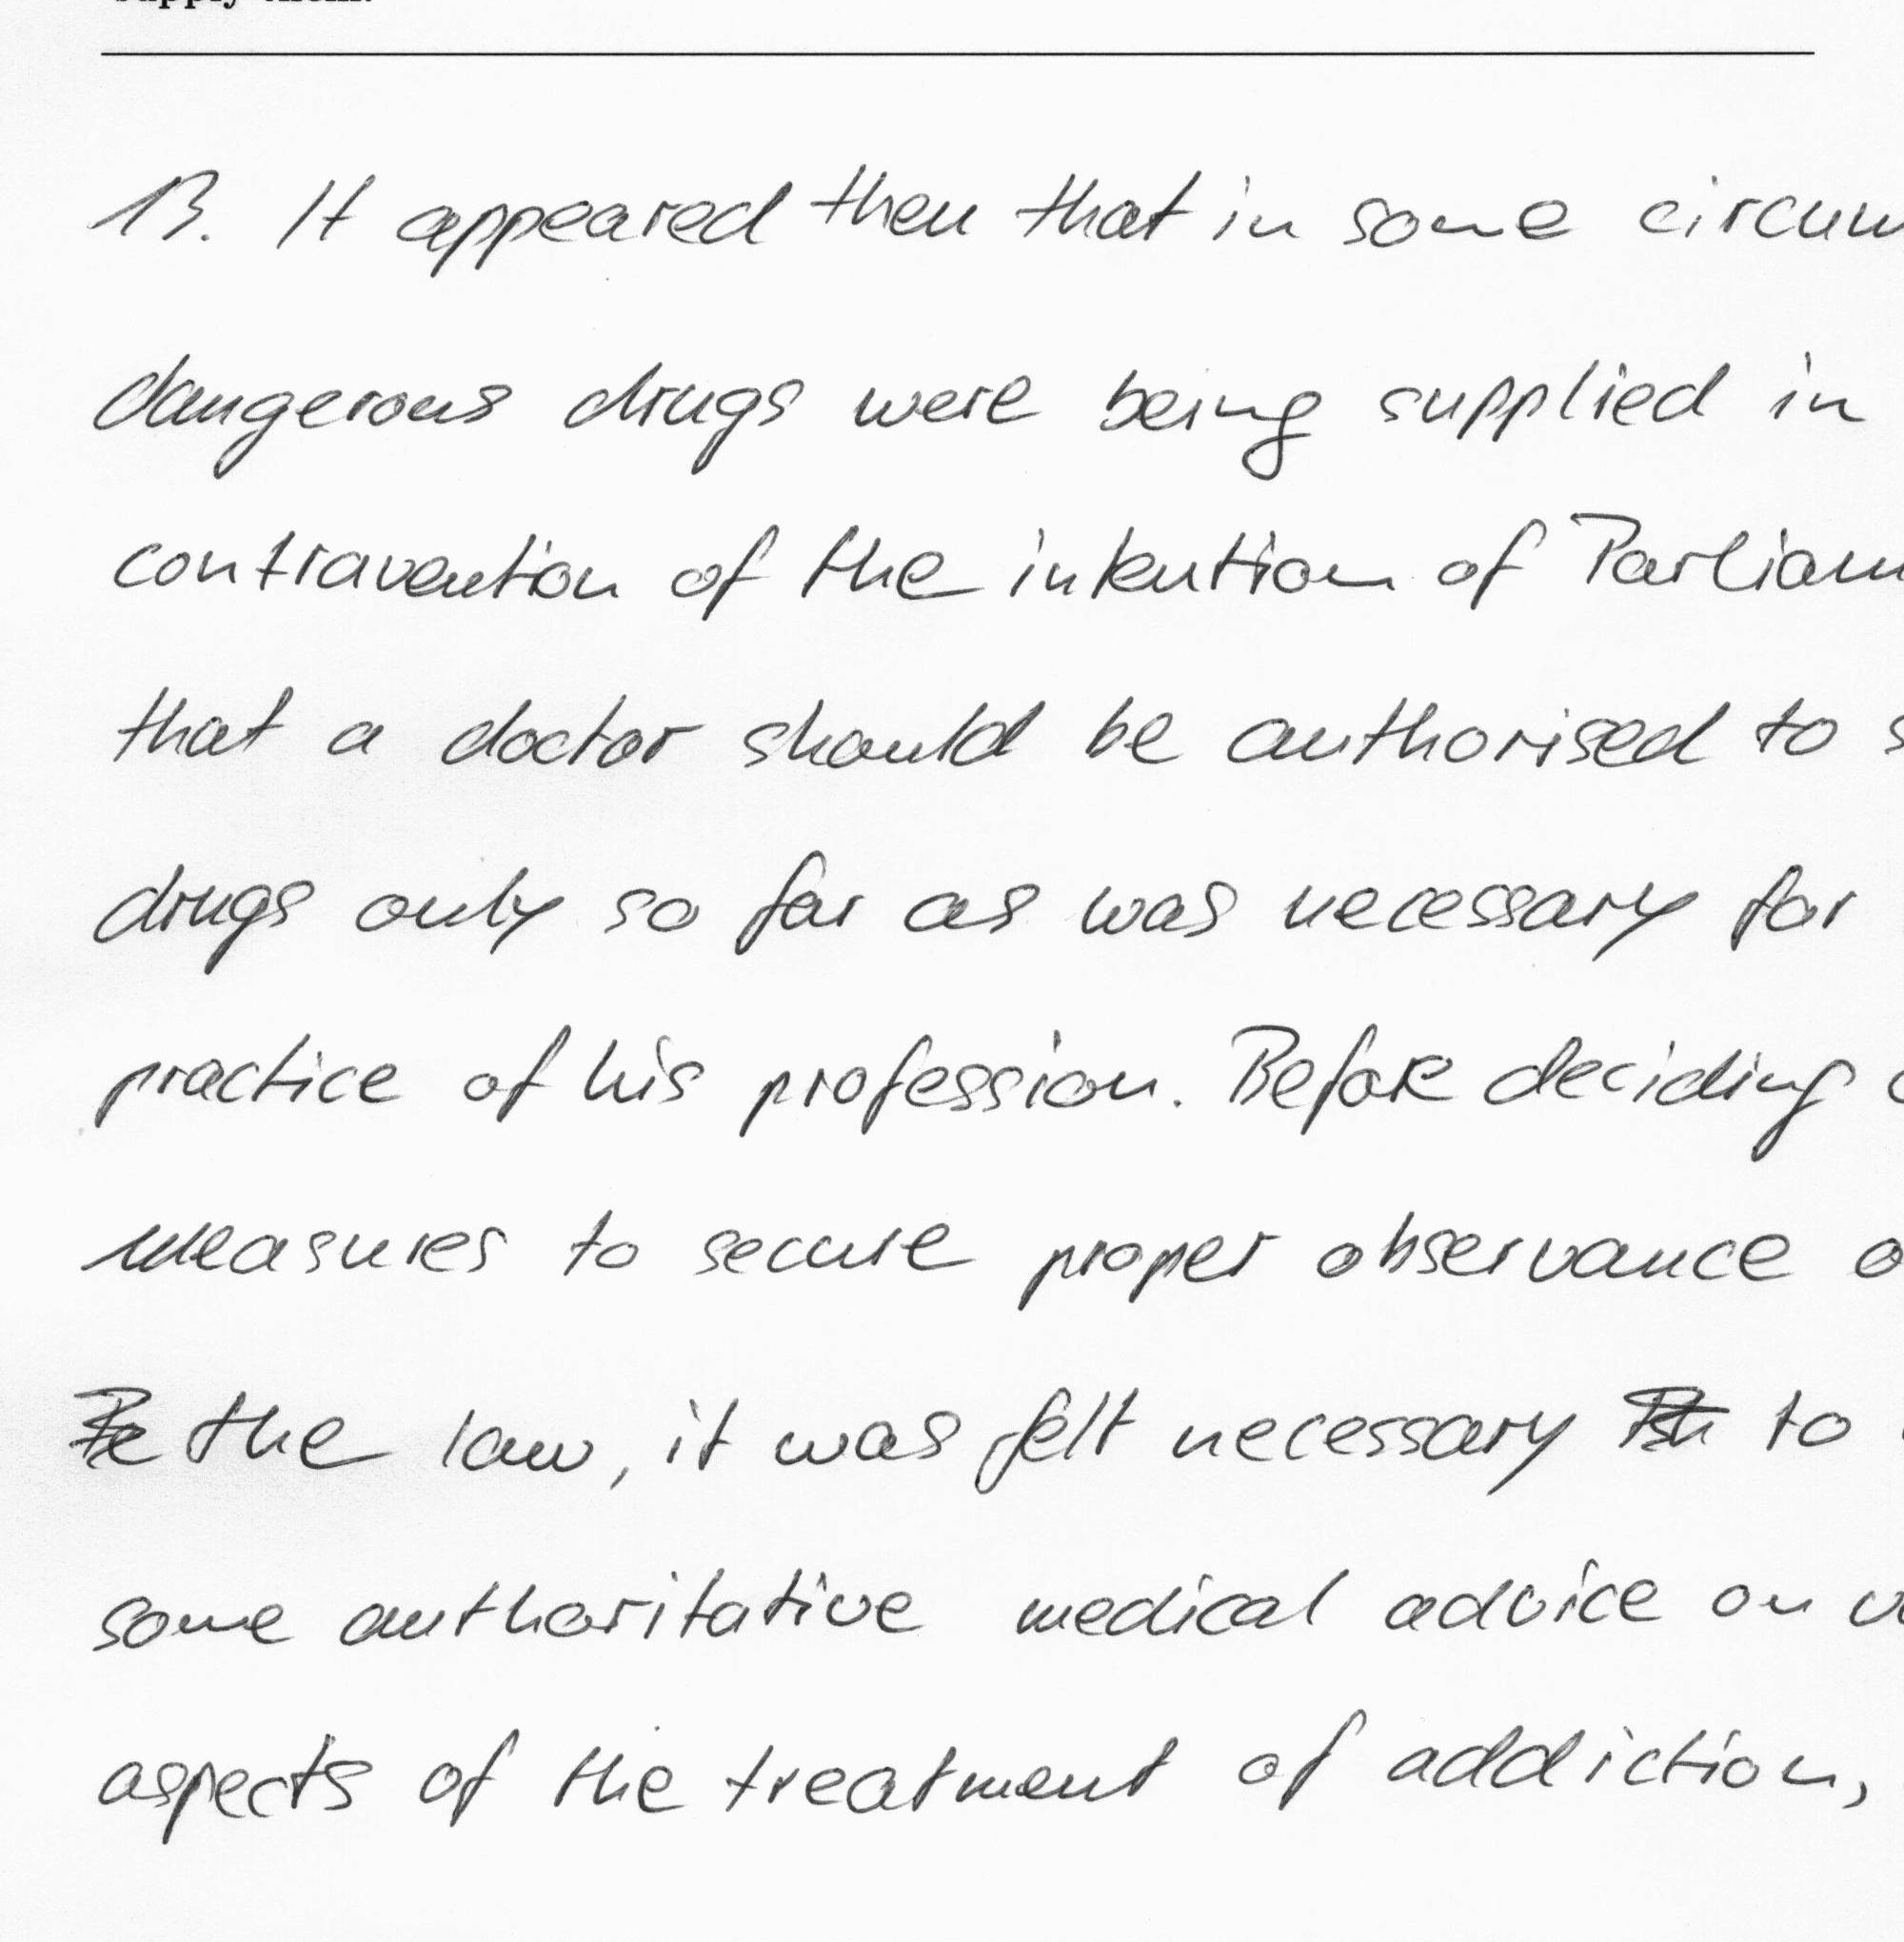 supply them.
13. It appeared then that in some circum
dangerous drugs were being supplied in
contravention of the intention of Parliam
that a doctor should be authorised to s
drugs only so far as was necessary for
practice of his profession. Before deciding
measures to secure proper observance o
the law, it was felt necessary to
some authoritative medical advice on
aspects of the treatment of addiction,